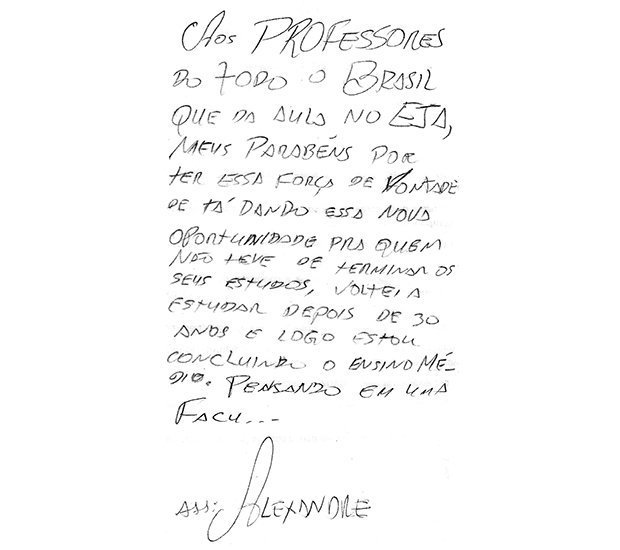 Aos PROFESSORES
DO TODO O BRASIL
QUE DA AULA NO EJA,
MEUS PARABÉNS POR
TER ESSA FORÇA DE VONTADE
DE TÁ DANDO ESSA NOVA
OPORTUNIDADE PRA QUEM
NÃO TEVE DE TERMINAR OS
SEUS ESTUDOS, VOLTEI A
ESTUDAR DEPOIS DE 30
ANOS E LOGO ESTOU
CONCLUINDO O ENSINO MÉ-
DIO. PENSANDO EM UMA
FACU...
ASS: ALEXANDRE